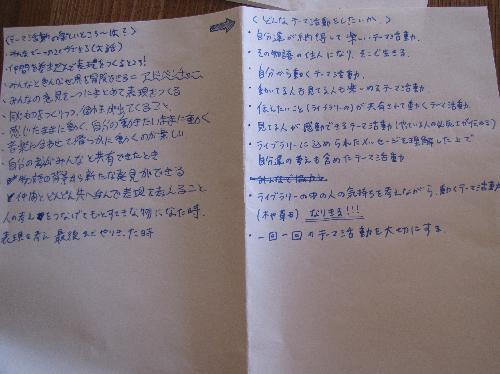 〈テーマ活動の楽しいところって何?〉
みんなで一つのものを作る(大話)
・仲間を巻き込んで表現をつくるところ!
・みんなときんな世界を冒険できること アドベンチャー
・みんなの意見を一つにまとめて表現をつくる
・同じものをつくりつつ、個性が出てくること。
感じたままに動く、自分の動きたいままに動く
・音楽に合わせて踊ったり動くのが楽しい
・自分の考えがみんなと共有できたとき
・物語の背景から新たな発見ができる
・仲間とどんどん共へ歩んで表現を考えること
人の考えをつなげてもっとすてきな物になった時.
表現を考え 最後までやりきった時
〈どんなテーマ活動をしたいか?〉
・自分達が納得して楽しいテーマ活動.
・その物語の住人になり、そこで生きる.
・自分から動くテーマ活動.
・動いてる人も見てる人も楽しめるテーマ活動
・伝えたいこと(ライブラリーの)が共有されて動くテーマ活動.
・見てる人が感動できるテーマ活動
・ライブラリーに込められたメッセージを理解した上で
自分達の考えも含めたテーマ活動
・ライブラリーの中の人の気持ちを考えながら、動くテーマ活動
なりきる!!!
・一回一回のテーマ活動を大切にする